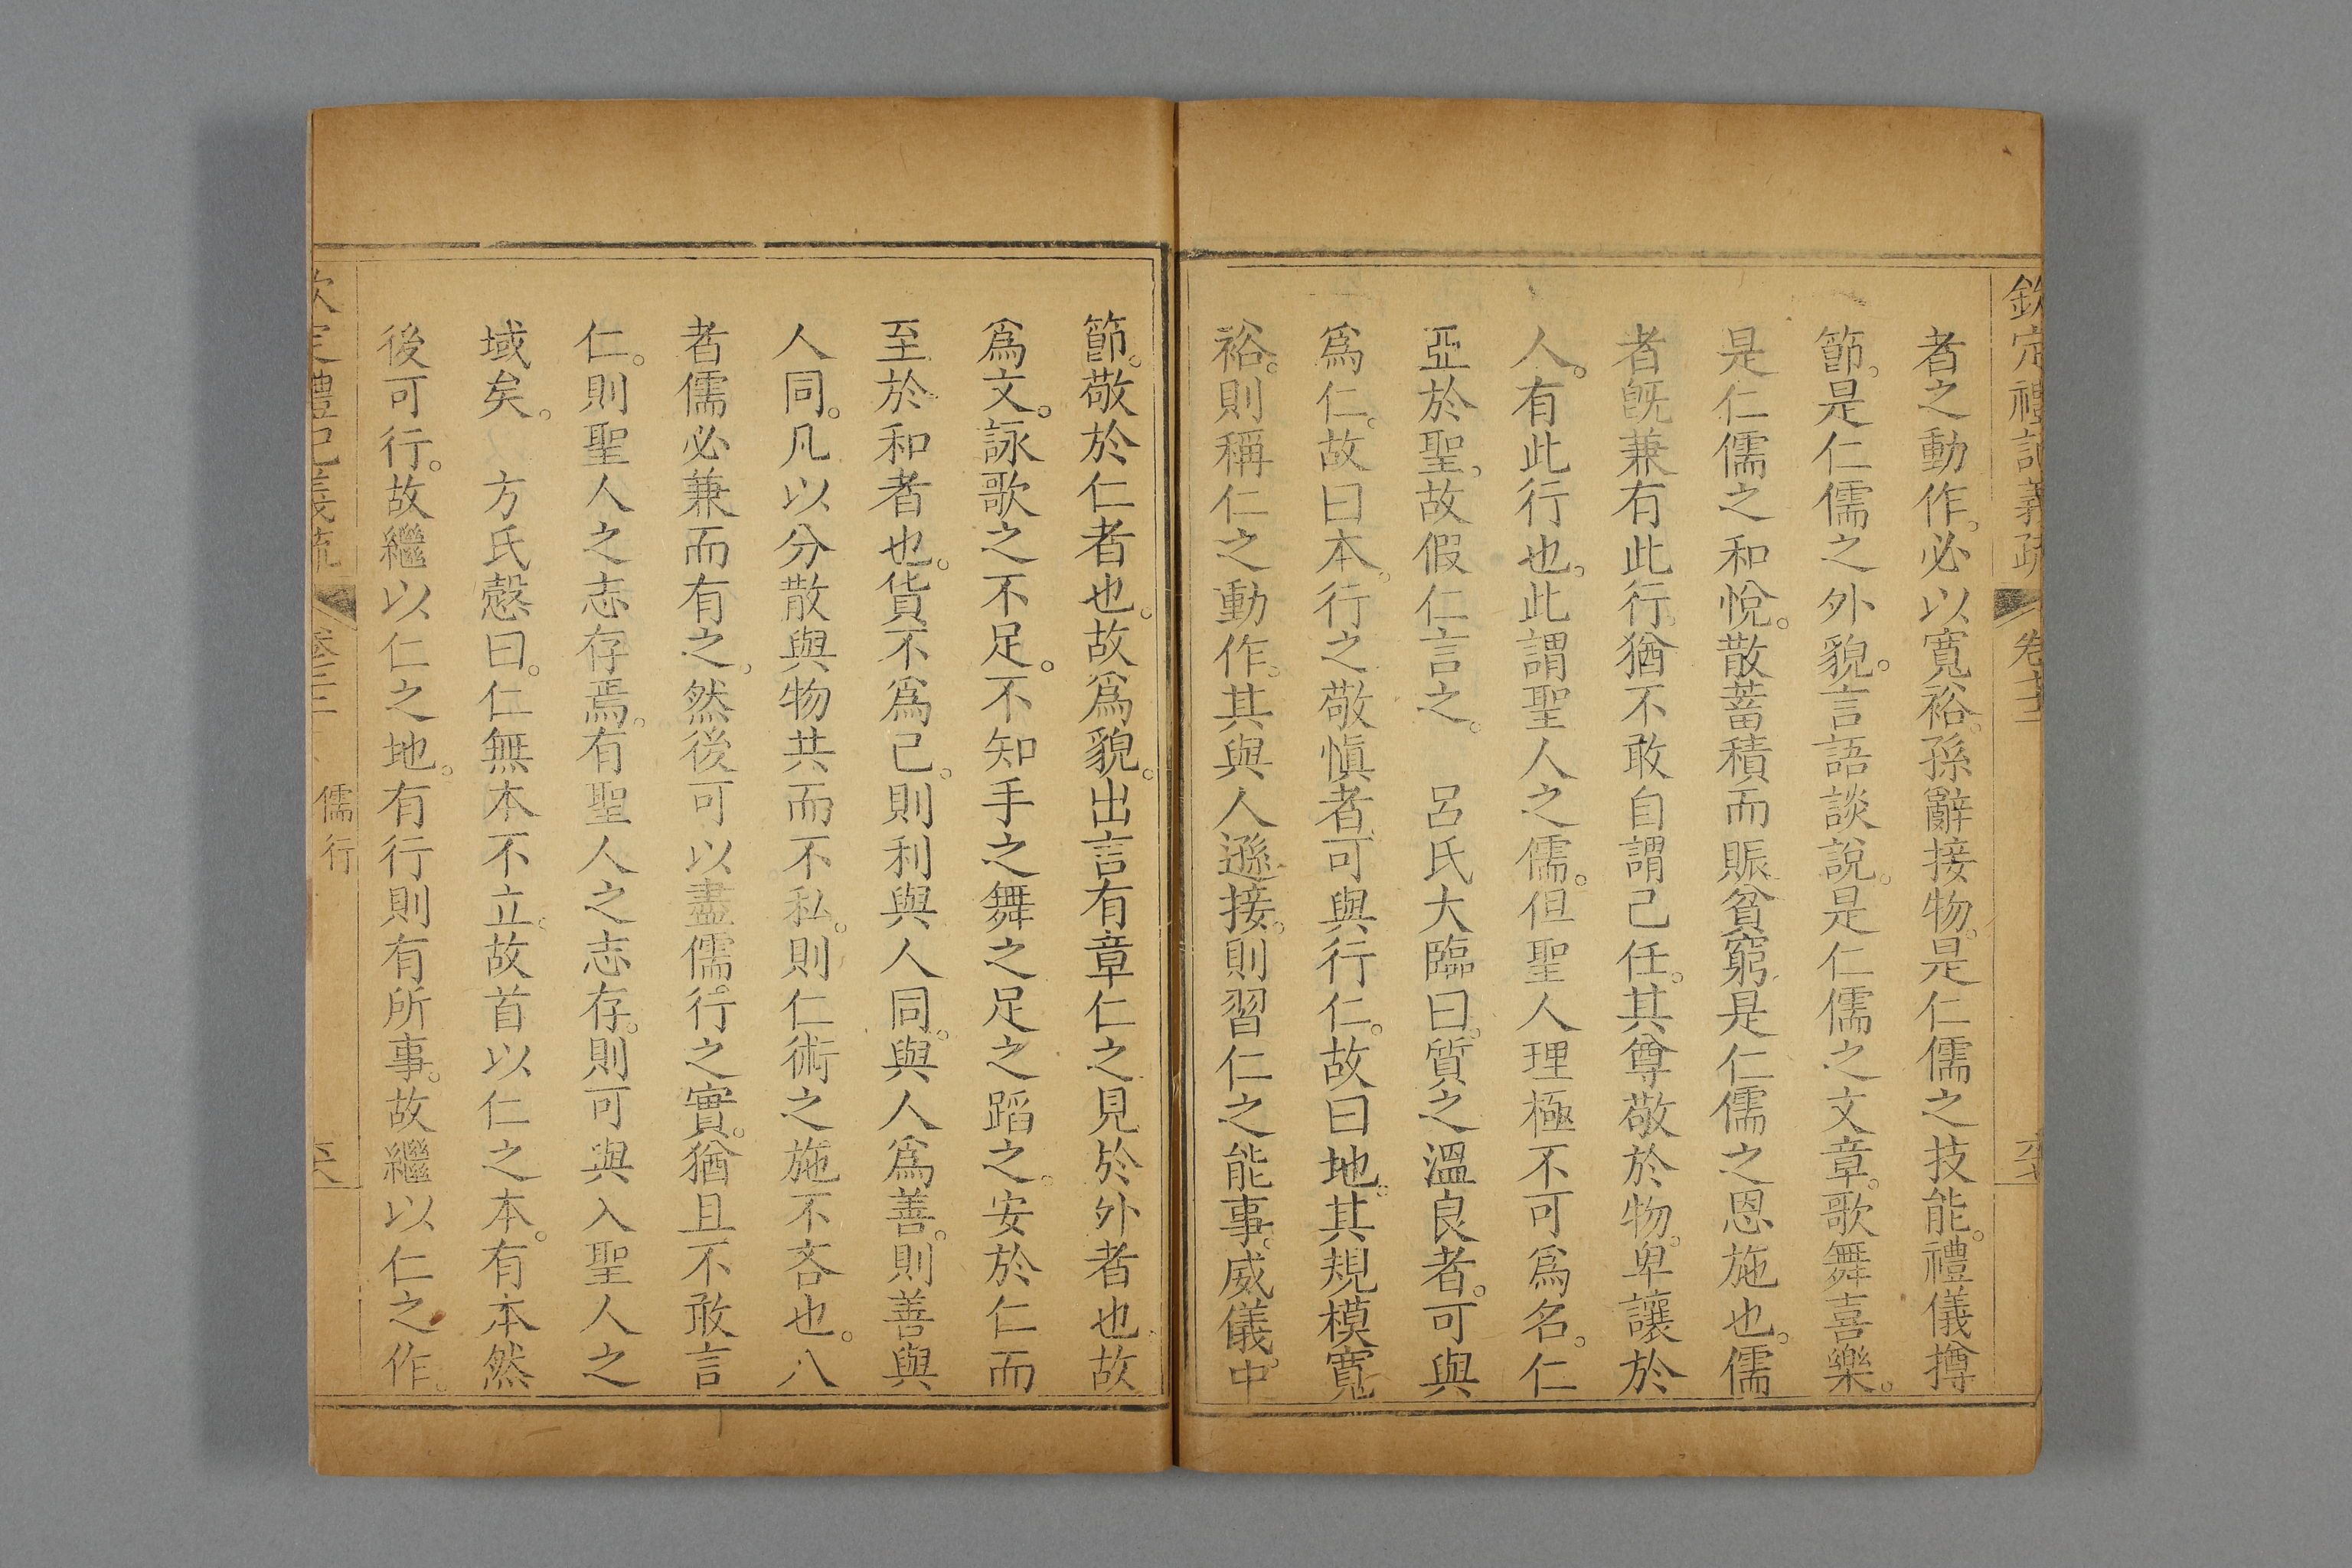 欽定禮記義疏 卷七十三
者之動作。必以寬裕。孫辭接物。是仁儒之技能。禮儀撙
節。是仁儒之外貌。言語談說。是仁儒之文章。歌舞喜樂。
是仁儒之和悅。散蓄積而賑貧窮。是仁儒之恩施也。儒
者旣兼有此行。猶不敢自謂己任。其尊敬於物。卑讓於
人。有此行也。此謂聖人之儒。但聖人理極不可爲名。仁
亞於聖。故假仁言之。 呂氏大臨曰。質之溫良者。可與
爲仁。故曰本。行之敬愼者可與行仁。故曰地。其規模寬
裕。則稱仁之動作。其與人遜接。則習仁之能事。威儀中
節。敬於仁者也。故爲貌。出言有章仁之見於外者也。故
爲文。詠歌之不足。不知手之舞之足之蹈之。安於仁而
至於和者也。貨不爲己。則利與人同。與人爲善。則善與
人同。凡以分散與物共而不私。則仁術之施不吝也。八
者儒必兼而有之。然後可以盡儒。行之實。猶且不敢言
仁。則聖人之志存焉。有聖人之志存。則可與入聖人之
域矣。 方氏慤曰。仁無本不立。故首以仁之本。有本然
後可行。故繼以仁之地。有行則有所事。故繼以仁之作。
欽定禮記義疏 儒行